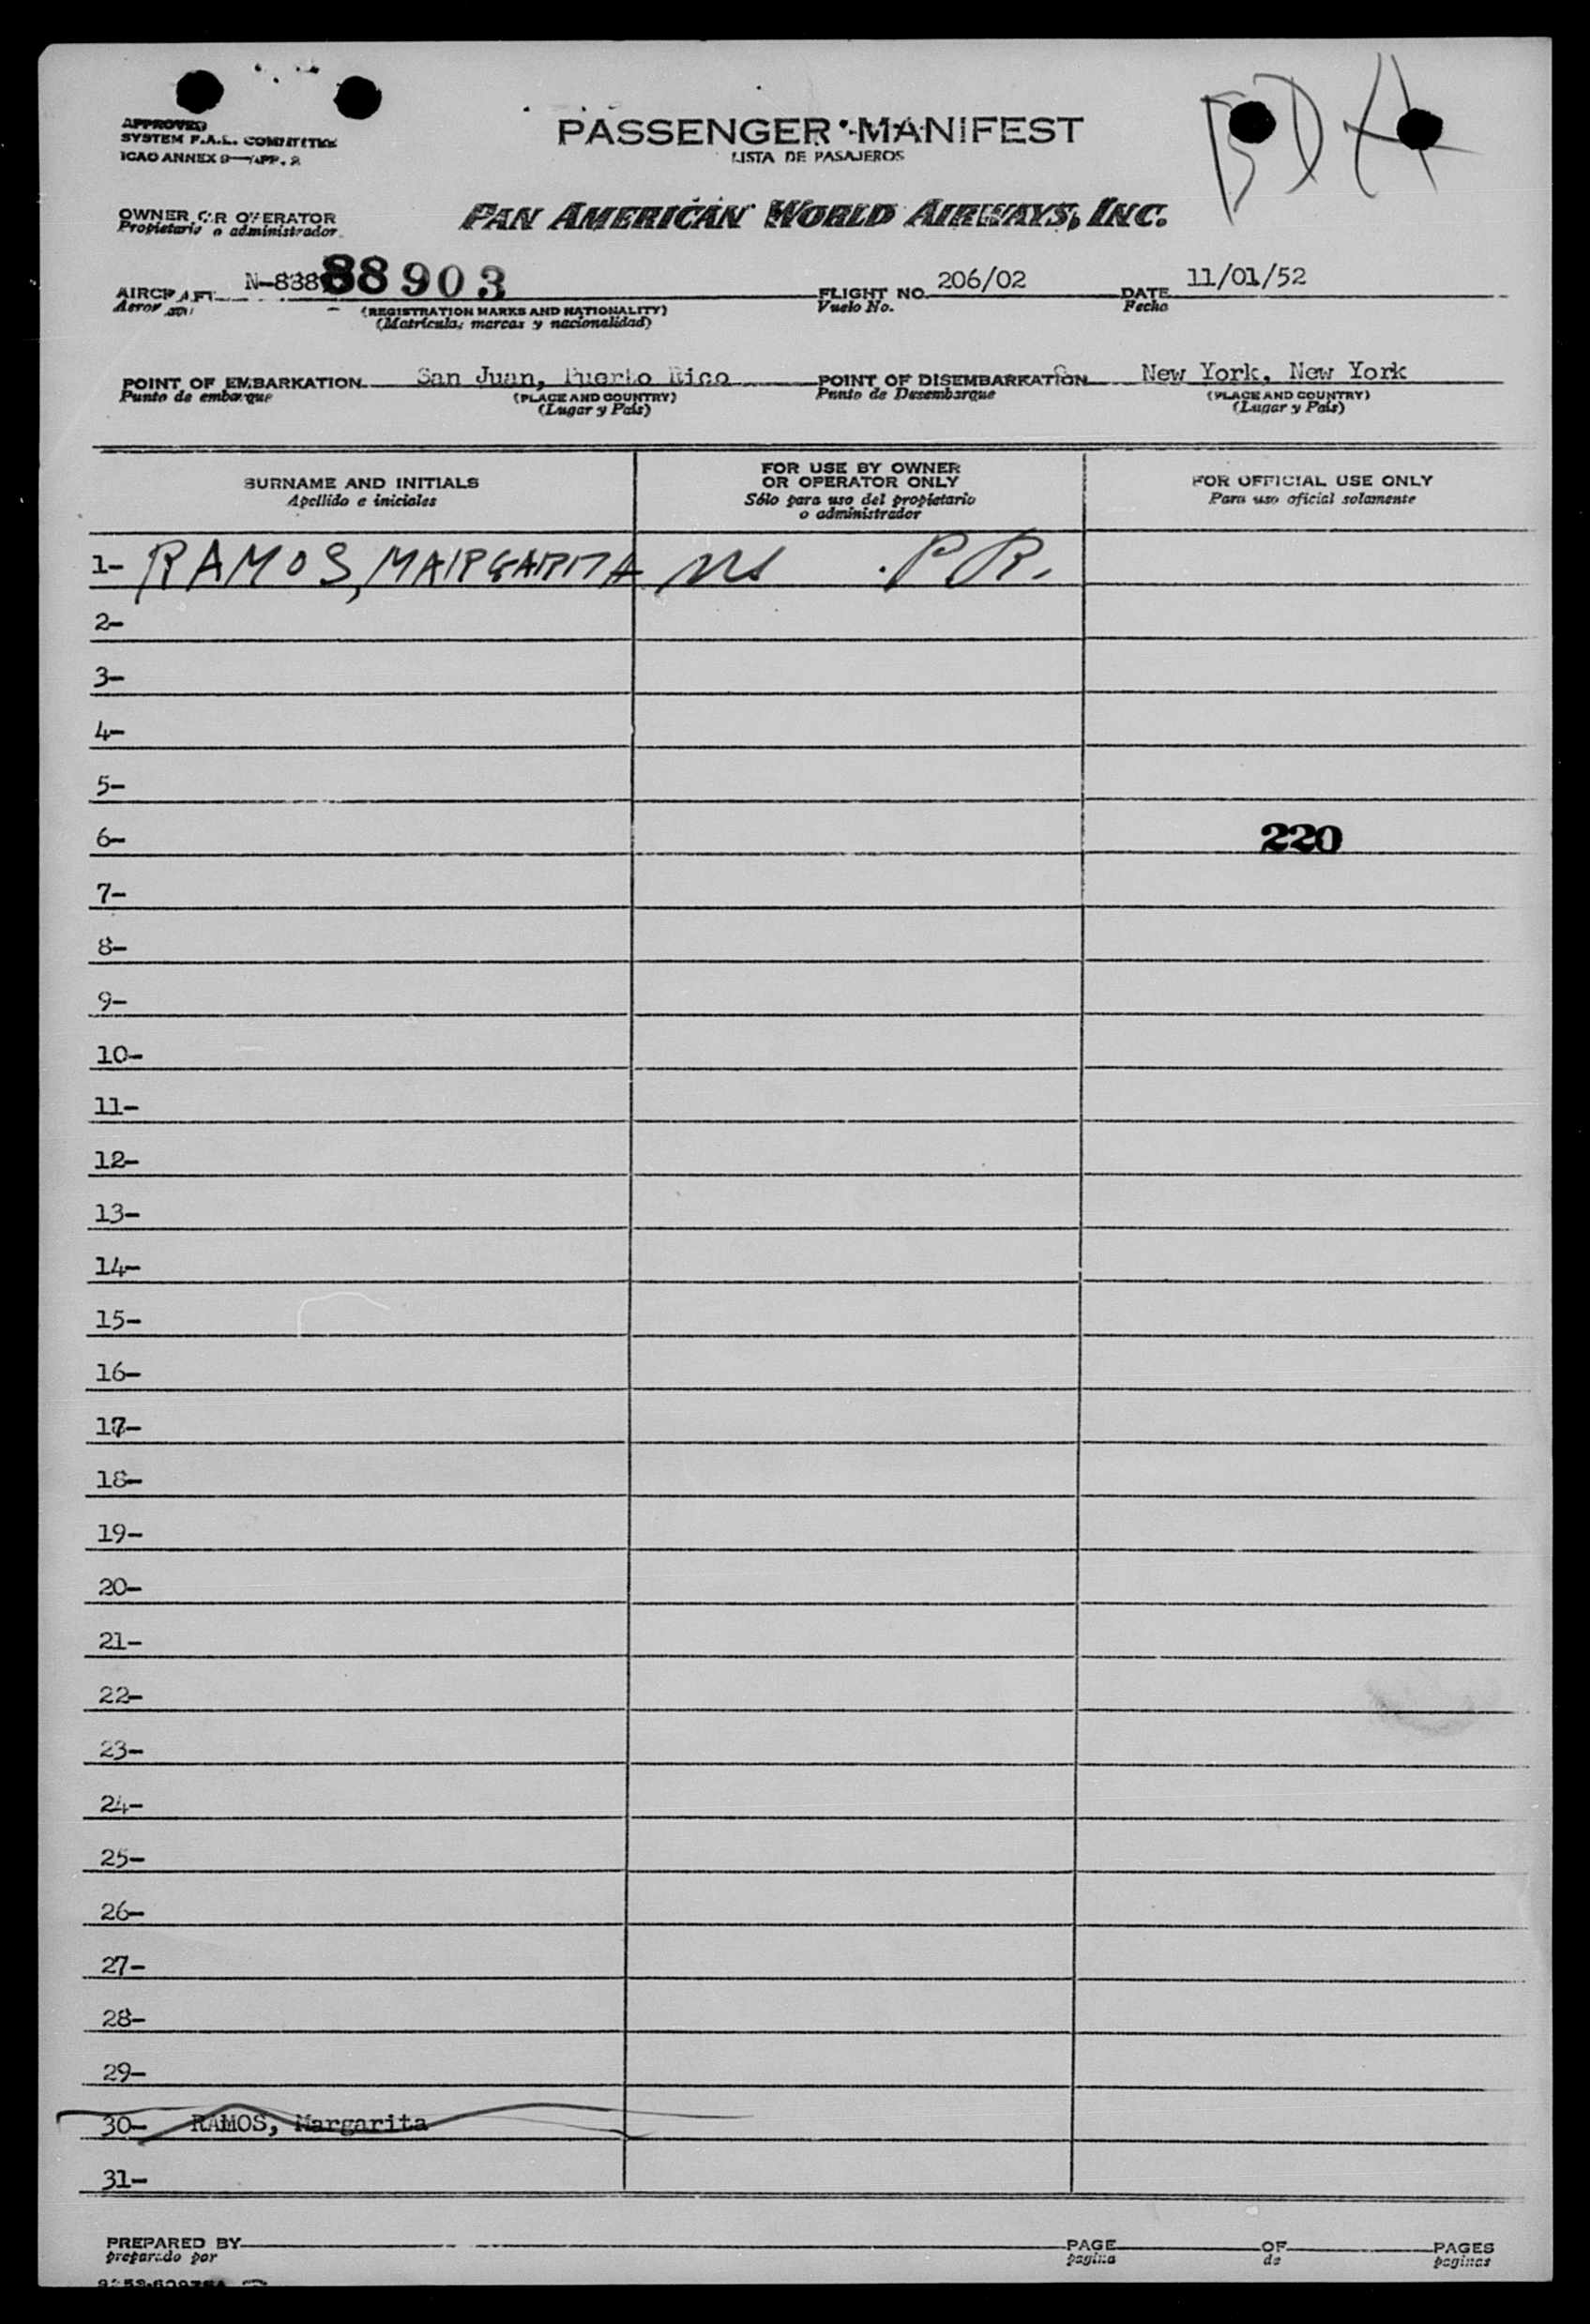 BDA
APPROVED
SYSTEM F.A.L. COMMITTEE
ICAO ANNEX 9—APP. 2
PASSENGER MANIFEST
LISTA DE PASAJEROS
OWNER OR OPERATOR
Propietario o administrador
PAN AMERICAN WORLD AIRWAYS, INC.
AIRCRAFT N-838 88903 FLIGHT NO. 206/02 DATE 11/01/52
Vuelo No. Fecha
(REGISTRATION MARKS AND NATIONALITY)
(Matrícula; marcas y nacionalidad)
POINT OF EMBARKATION San Juan, Puerto Rico POINT OF DISEMBARKATION New York, New York
Punto de embarque (PLACE AND COUNTRY) Punto de Desembarque (PLACE AND COUNTRY)
(Lugar y País) (Lugar y País)
SURNAME AND INITIALS FOR USE BY OWNER OR OPERATOR ONLY FOR OFFICIAL USE ONLY
Apellido e iniciales Sólo para uso del propietario o administrador Para uso oficial solamente
1- RAMOS, MARGARITA P.R.
2-
3-
4-
5-
6- 220
7-
8-
9-
10-
11-
12-
13-
14-
15-
16-
17-
18-
19-
20-
21-
22-
23-
24-
25-
26-
27-
28-
29-
30- RAMOS, Margarita
31-
PREPARED BY PAGE OF PAGES
preparado por pagina de paginas